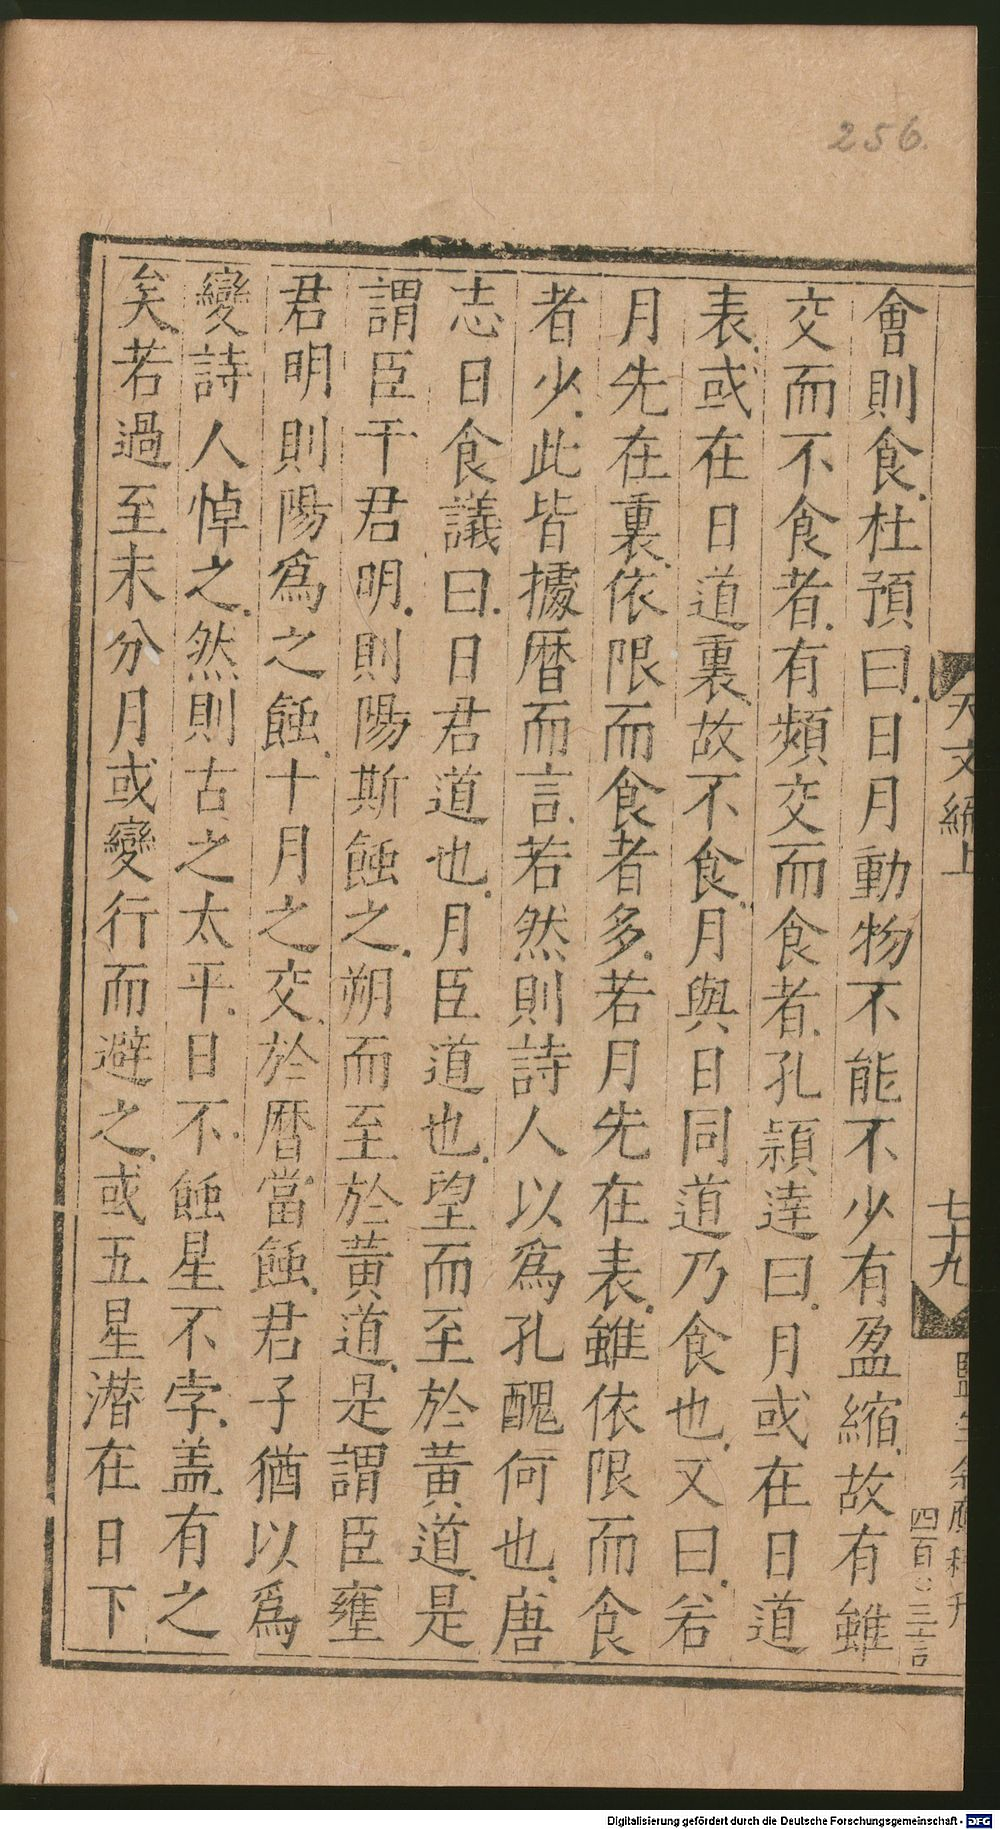 256.
天文編上
七十九
四百〇三十言
會則食.杜預曰.日月動物不能不少有盈縮.故有雖
交而不食者.有頻交而食者.孔穎達曰.月或在日道
表.或在日道裏.故不食.月與日同道乃食也.又曰.若
月先在裏.依限而食者多.若月先在表.雖依限而食
者少.此皆據曆而言.若然則詩人以爲孔醜何也.唐
志日食議曰.日君道也.月臣道也.望而至於黃道.是
謂臣干君明.則陽斯蝕之.朔而至於黃道.是謂臣壅
君明則陽爲之蝕.十月之交.於曆當蝕.君子猶以爲
變詩人悼之.然則古之太平.日不蝕星不孛.盖有之
矣若過至未分月或變行而避之.或五星潛在日下
Digitalisierung gefördert durch die Deutsche Forschungsgemeinschaft - DFG